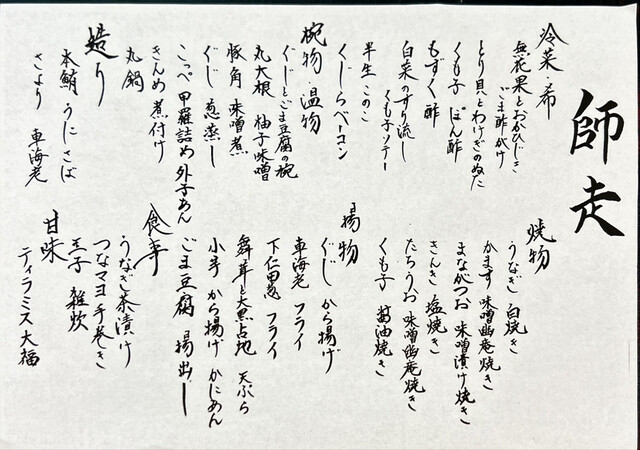 師走
冷菜・希
無花果とおかひじき
ごま酢がけ
とり貝とわけぎのぬた
くも子 ぽん酢
もずく 酢
白菜のすり流し
くも子ソテー
半生 このこ
くじらベーコン
椀物・温物
ぐじとごま豆腐の椀
丸大根 柚子味噌
豚角 味噌煮
ぐじ 葱蒸し
こっぺ 甲羅詰め 外子あん
きんめ 煮付け
丸鍋
造り
本鮪 うに さば
さより 車海老
焼物
うなぎ 白焼き
かます 味噌幽庵焼き
まながつお 味噌漬け焼き
きんき 塩焼き
たちうお 味噌幽庵焼き
くも子 醤油焼き
揚物
ぐじ から揚げ
車海老 フライ
下仁田葱 フライ
舞茸と大黒占地 天ぷら
小芋 から揚げ かにあん
ごま豆腐 揚出し
食事
うなぎ茶漬け
つなマヨ手巻き
玉子 雑炊
甘味
ティラミス大福